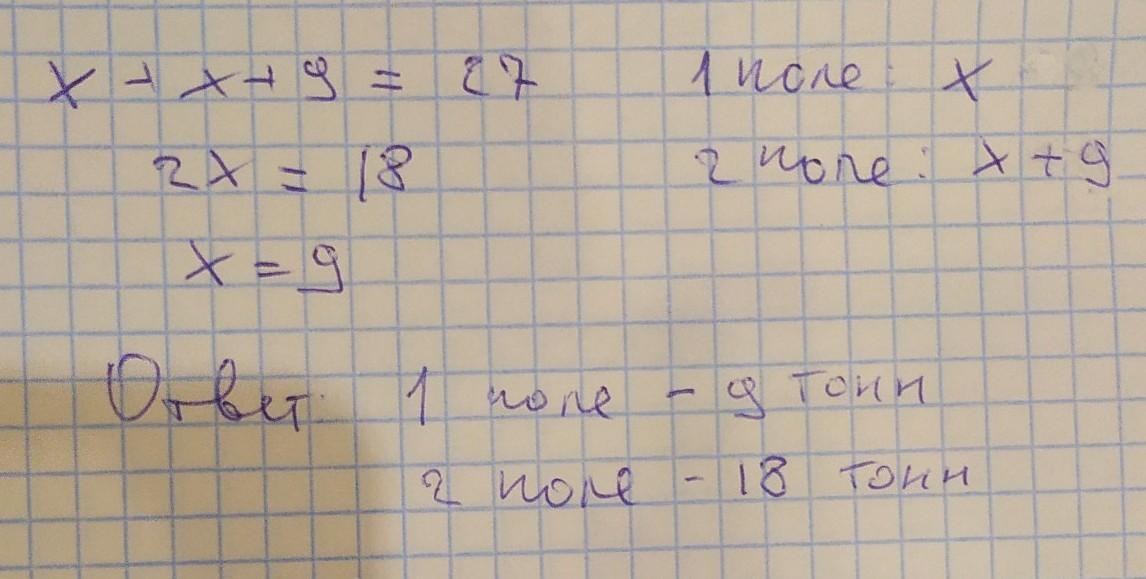 x + x + 9 = 27
1 поле: x
2x = 18
2 поле: x + 9
x = 9
Ответ: 1 поле - 9 тонн
2 поле - 18 тонн